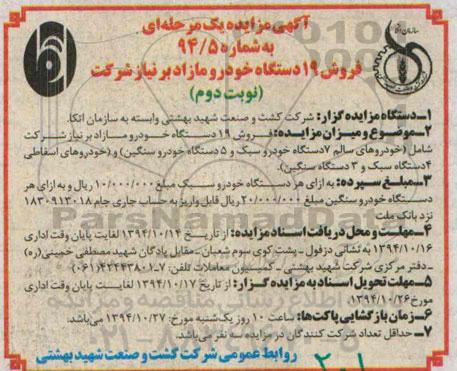 آگهی مزایده یک مرحله‌ای
به شماره ۹۴/۵
فروش ۱۹ دستگاه خودرو مازاد بر نیاز شرکت
(نوبت دوم)
۱ـ دستگاه مزایده گزار: شرکت کشت و صنعت شهید بهشتی وابسته به سازمان اتکا.
۲ـ موضوع و میزان مزایده: فروش ۱۹ دستگاه خودرو مازاد بر نیاز شرکت
شامل (خودروهای سالم ۷ دستگاه خودرو سبک و ۵ دستگاه خودرو سنگین) و (خودروهای اسقاطی
۴ دستگاه سبک و ۳ دستگاه سنگین).
۳ـ مبلغ سپرده: به ازای هر دستگاه خودرو سبک مبلغ ۱۰/۰۰۰/۰۰۰ ریال و به ازای هر
دستگاه خودرو سنگین مبلغ ۲۰/۰۰۰/۰۰۰ ریال قابل واریز به حساب جاری جام ۱۸۳۰۹۱۳۰۱۸
نزد بانک ملت
۴ـ مهلت و محل دریافت اسناد مزایده: از تاریخ ۱۳۹۴/۱۰/۱۴ لغایت پایان وقت اداری
۱۳۹۴/۱۰/۱۶ به نشانی دزفول ـ پشت کوی سوم شعبان ـ مقابل پادگان شهید مصطفی خمینی (ره)
ـ دفتر مرکزی شرکت شهید بهشتی ـ کمیسیون معاملات تلفن: ۷ـ۴۲۴۴۳۸۰۱ (۰۶۱)
۵ـ مهلت تحویل اسناد به مزایده گزار: از تاریخ ۱۳۹۴/۱۰/۱۷ لغایت پایان وقت اداری
مورخ ۱۳۹۴/۱۰/۲۶.
۶ـ زمان بازگشایی پاکت‌ها: ساعت ۱۰ روز یک‌شنبه مورخ: ۱۳۹۴/۱۰/۲۷ می‌باشد.
۷ـ حداقل تعداد شرکت کنندگان در مزایده سه نفر می‌باشد.
روابط عمومی شرکت کشت و صنعت شهید بهشتی